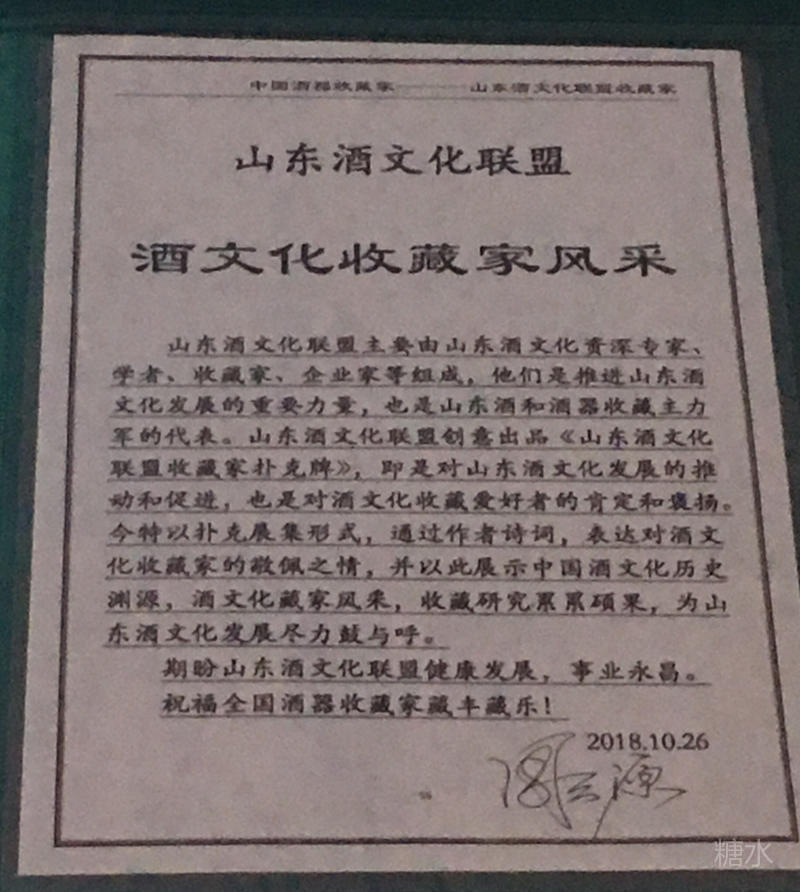 中国酒器收藏家————山东酒文化联盟收藏家
山东酒文化联盟
酒文化收藏家风采
山东酒文化联盟主要由山东酒文化资深专家、
学者、收藏家、企业家等组成，他们是推进山东酒
文化发展的重要力量，也是山东酒和酒器收藏主力
军的代表。山东酒文化联盟创意出品《山东酒文化
联盟收藏家扑克牌》，即是对山东酒文化发展的推
动和促进，也是对酒文化收藏爱好者的肯定和褒扬。
今特以扑克展集形式，通过作者诗词，表达对酒文
化收藏家的敬佩之情，并以此展示中国酒文化历史
渊源，酒文化藏家风采，收藏研究累累硕果，为山
东酒文化发展尽力鼓与呼。
期盼山东酒文化联盟健康发展，事业永昌。
祝福全国酒器收藏家藏丰藏乐！
2018.10.26
糖水